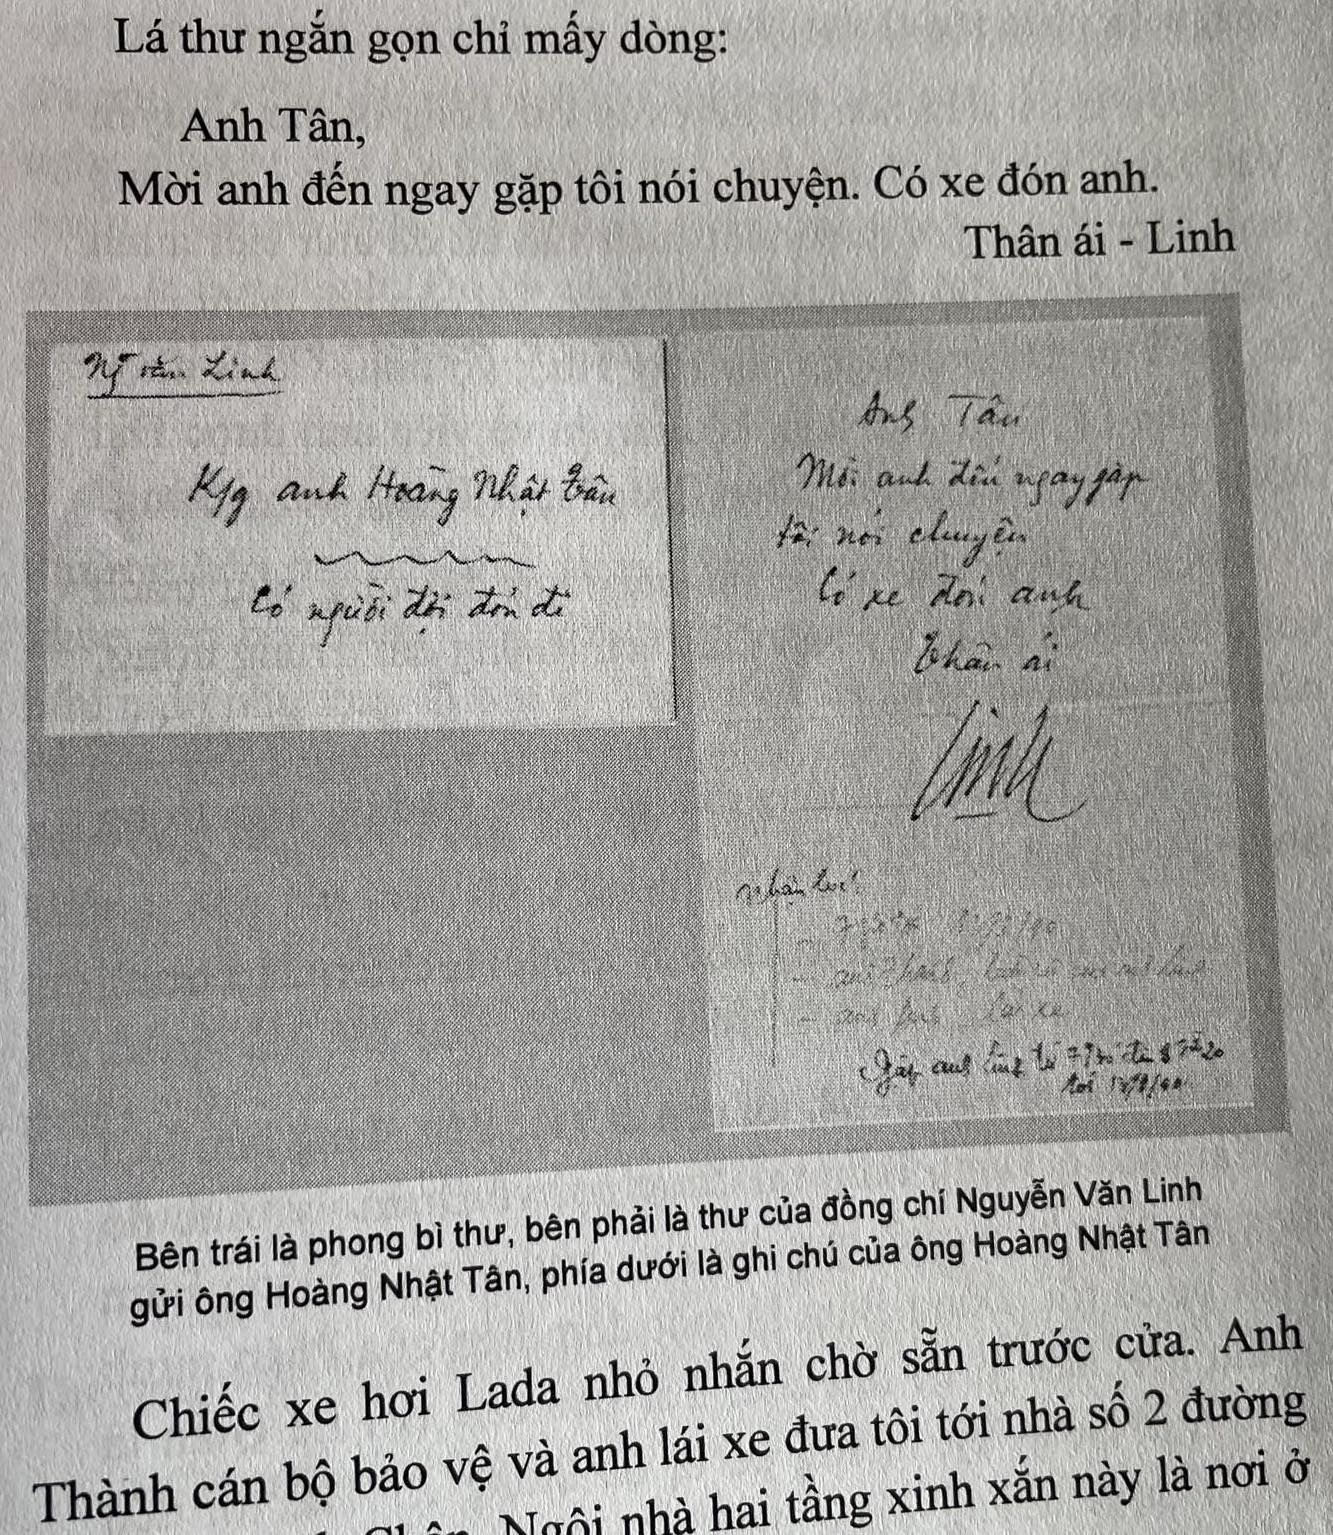 Lá thư ngắn gọn chỉ mấy dòng:
Anh Tân,
Mời anh đến ngay gặp tôi nói chuyện. Có xe đón anh.
Thân ái - Linh
Ng văn Linh
K/g anh Hoàng Nhật Tân
Có người đợi đón đi
Anh Tân
Mời anh đến ngay gặp
tôi nói chuyện
Có xe đón anh
Thân ái
Linh
Nhận lúc
lái xe
Gặp anh Linh từ
Bên trái là phong bì thư, bên phải là thư của đồng chí Nguyễn Văn Linh
gửi ông Hoàng Nhật Tân, phía dưới là ghi chú của ông Hoàng Nhật Tân
Chiếc xe hơi Lada nhỏ nhắn chờ sẵn trước cửa. Anh
Thành cán bộ bảo vệ và anh lái xe đưa tôi tới nhà số 2 đường
Ngôi nhà hai tầng xinh xắn này là nơi ở